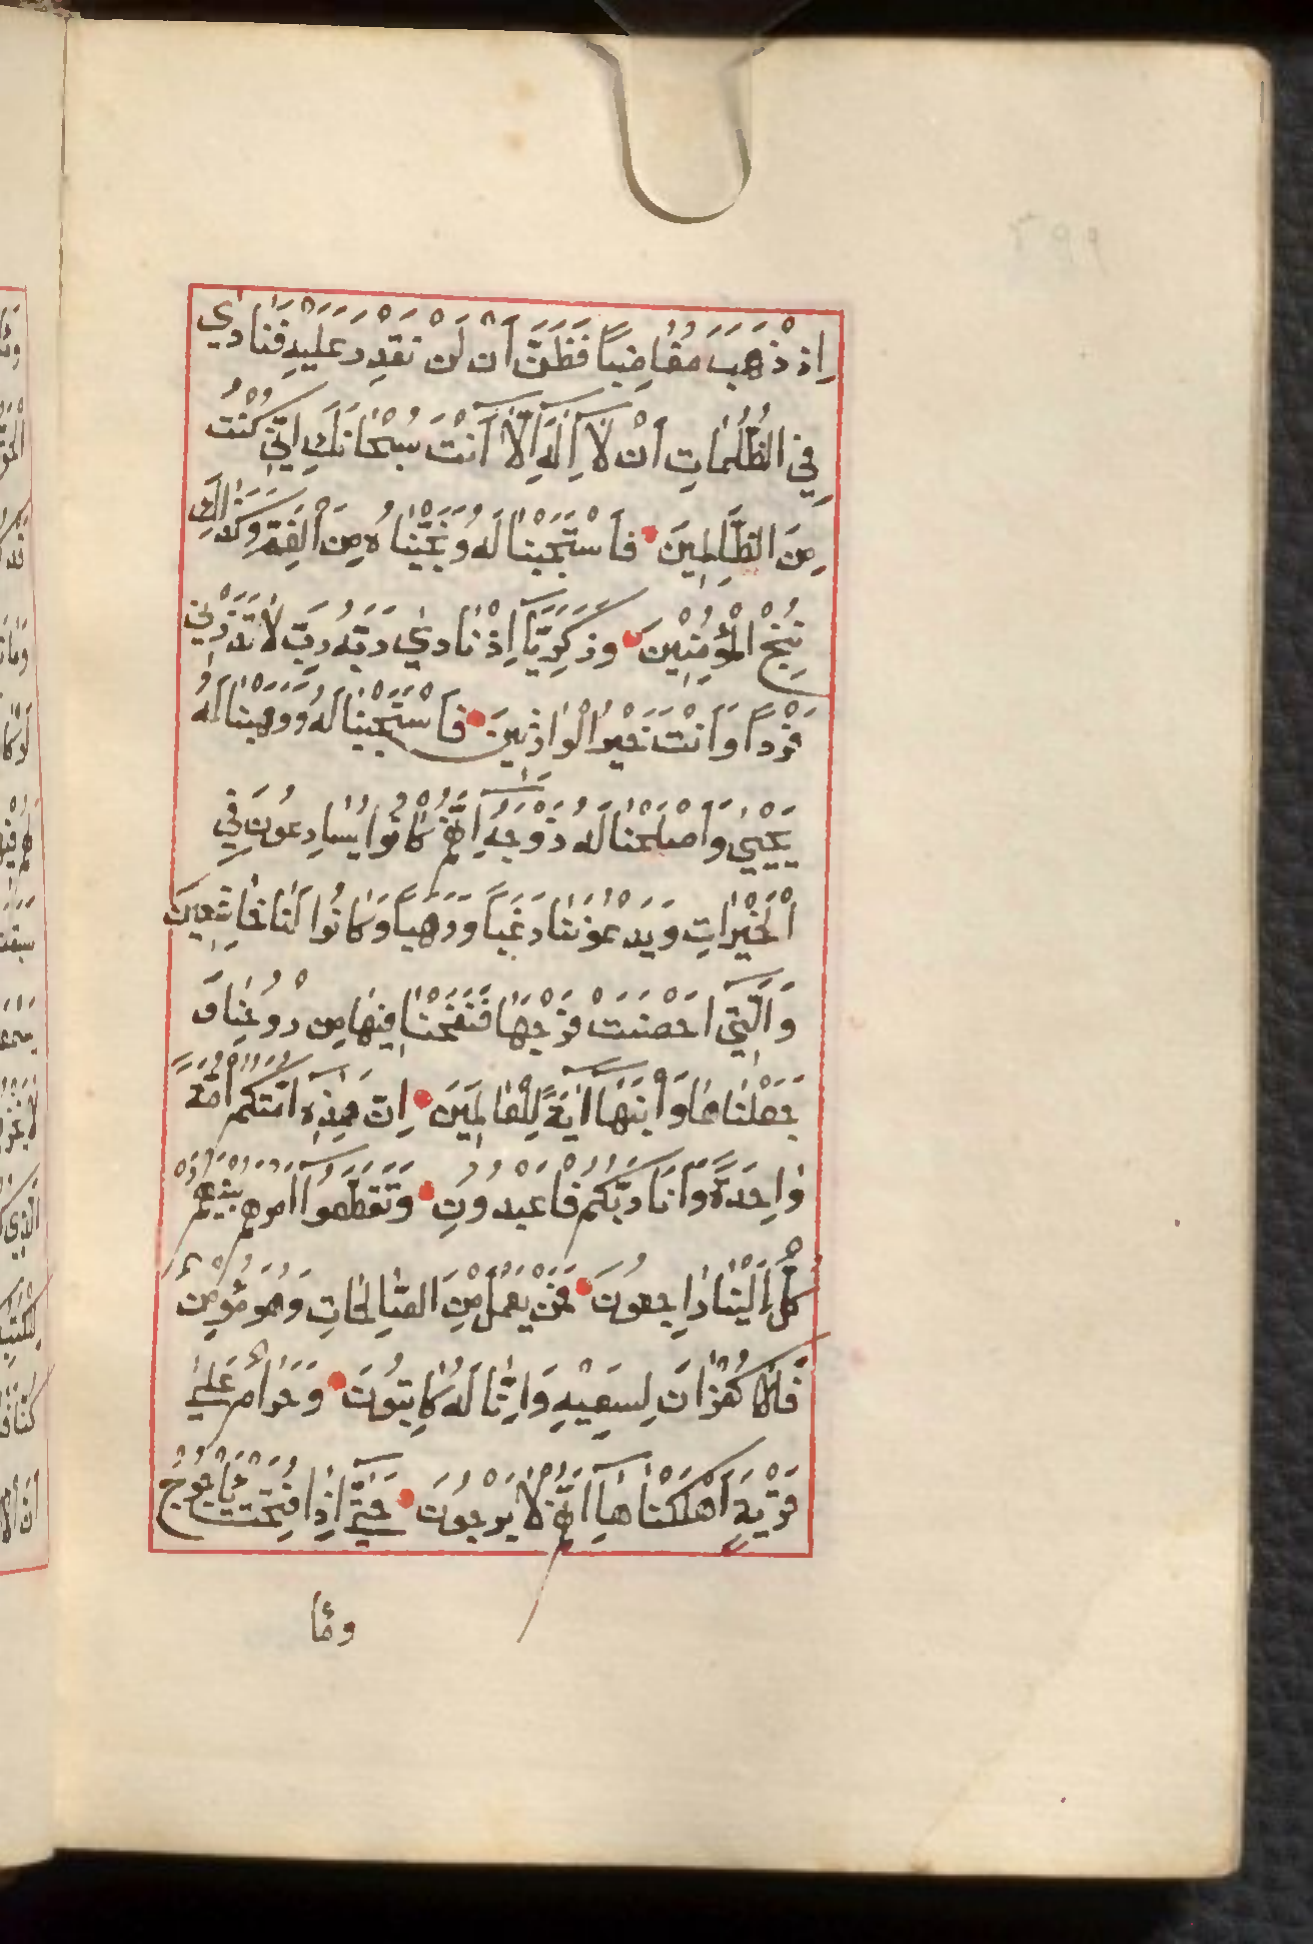 اِذ ذَهَبَ مُغَاضِباً فَظَنَّ اَن لَن نَقدِرَ عَلَيهِ فَنَادٰي
فِي الظُّلُمَاتِ اَنْ لَا اِلٰهَ اِلَّا اَنْتَ سُبْحَانَكَ اِنِّي كُنْتُ
مِنَ الظَّالِمِينَ فَاسْتَجَبْنَا لَهُ وَنَجَّيْنَاهُ مِنَ الْغَمِّ وَكَذٰلِكَ
نُنْجِ الْمُؤْمِنِيْنَ وَزَكَرِيَّا اِذْ نَادٰي رَبَّهُ رَبِّ لَا تَذَرْنِي
فَرْداً وَاَنْتَ خَيْرُ الْوَارِثِينَ فَاسْتَجَبْنَا لَهُ وَوَهَبْنَا لَهُ
يَحْيٰي وَاَصْلَحْنَا لَهُ زَوْجَهُ اِنَّهُمْ كَانُوا يُسَارِعُونَ فِي
الْخَيْرَاتِ وَيَدْعُوْنَنَا رَغَباً وَرَهَباً وَكَانُوا لَنَا خَاشِعِينَ
وَالَّتِي اَحْصَنَتْ فَرْجَهَا فَنَفَخْنَا فِيْهَا مِنْ رُوحِنَا وَ
جَعَلْنَاهَا وَابْنَهَا اٰيَةً لِلْعَالَمِيَن اِنَّ هٰذِهِ اُمَّتُكُمْ اُمَّةً
وَاحِدَةً وَاَنَا رَبُّكُمْ فَاعْبُدُونِ وَتَقَطَّعُوا اَمْرَهُمْ بَيْنَهُمْ
كُلٌّ اِلَيْنَا رَاجِعُونَ فَمَنْ يَعْمَلْ مِنَ الصَّالِحَاتِ وَهُوَ مُؤْمِنٌ
فَلَا كُفْرَانَ لِسَعْيِهِ وَاِنَّا لَهُ كَاتِبُونَ وَحَرَامٌ عَلٰي
قَرْيَةٍ اَهْلَكْنَاهَا اَنَّهُمْ لَا يَرْجِعُونَ حَتَّي اِذَا فُتِحَتْ يَاْجُوجُ
ومٰا